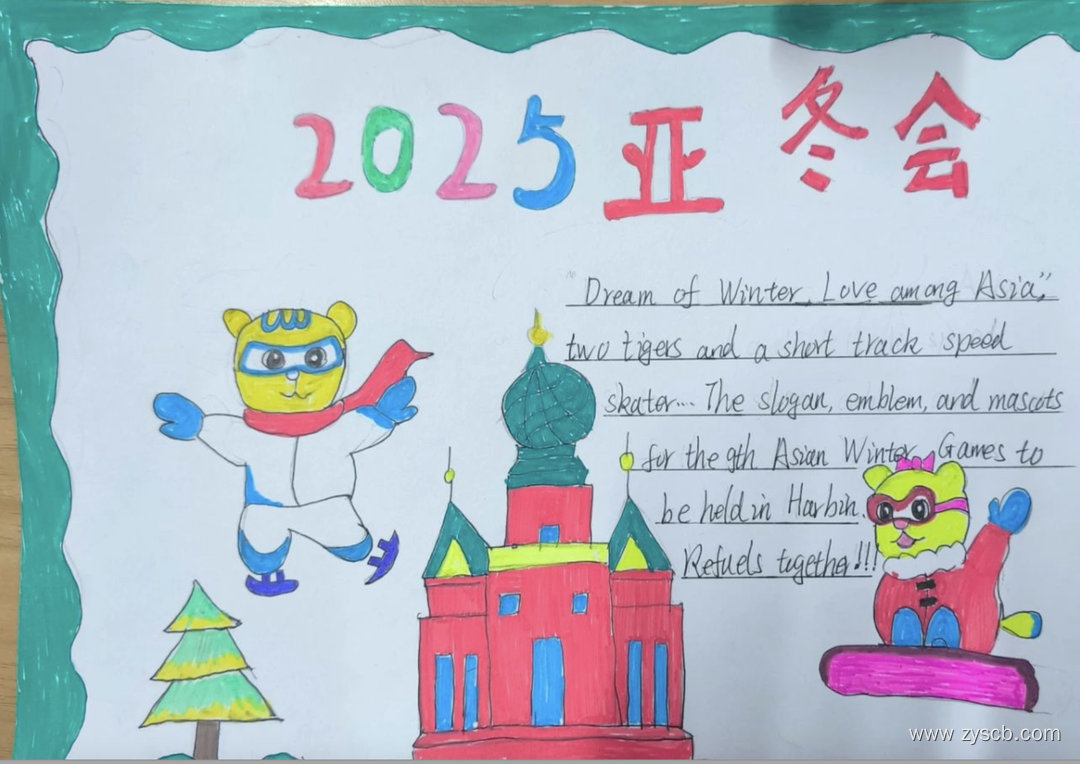 2025 亚冬会
"Dream of Winter, Love among Asia",
two tigers and a short track speed
skater... The slogan, emblem, and mascots
for the 9th Asian Winter Games to
be held in Harbin.
Refuels together!!!
www.zyscb.com